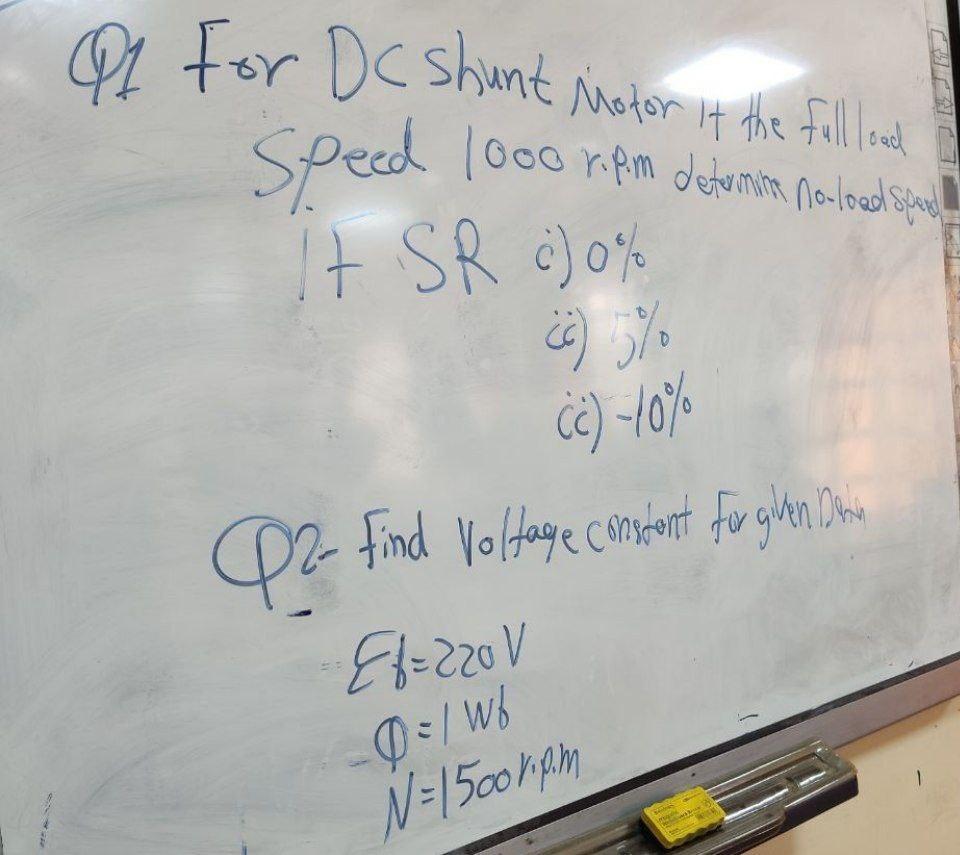 Q1 For DC Shunt Motor If the full load
Speed 1000 r.p.m determine no-load speed
IF SR i) 0%
ii) 5%
ii) -10%
Q2- find Voltage constant for given Data
Eb=220 V
Φ=1 Wb
N=1500 r.p.m